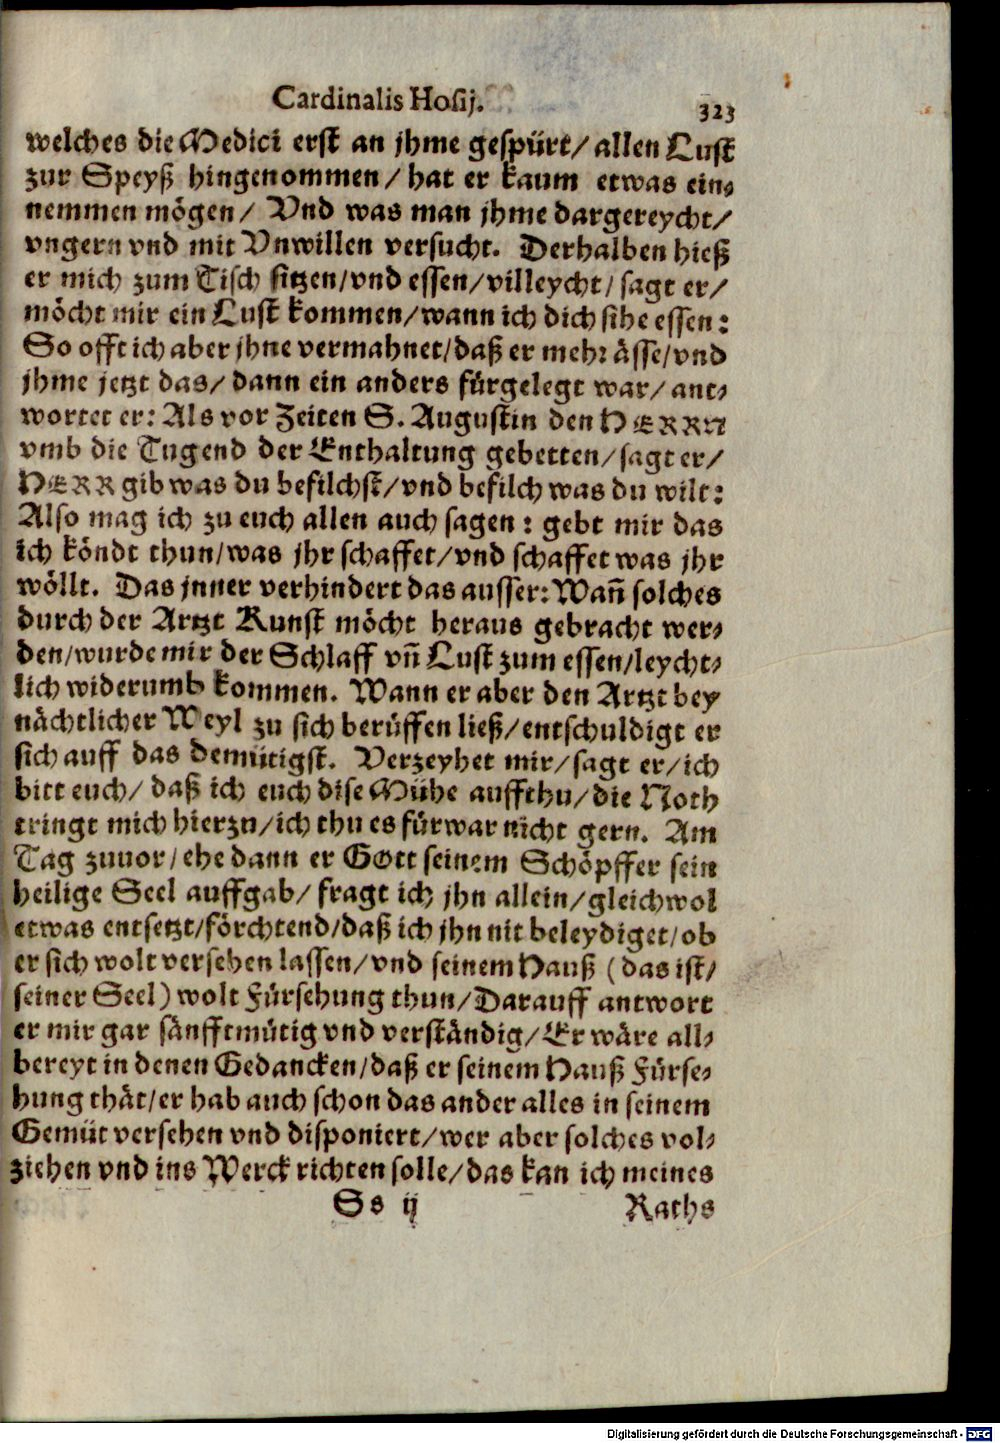 Cardinalis Hosij. 323
welches die Medici erst an jhme gespürt/ allen Lust
zur Speyß hingenommen/ hat er kaum etwas ein-
nemmen mögen/ Vnd was man jhme dargereycht/
vngern vnd mit Vnwillen versucht. Derhalben hieß
er mich zum Tisch sitzen/vnd essen/villeycht/ sagt er/
möcht mir ein Lust kommen/wann ich dich sihe essen:
So offt ich aber jhne vermahnet/daß er mehr ässe/vnd
jhme jetzt das/ dann ein anders fürgelegt war/ ant-
wortet er: Als vor Zeiten S. Augustin den HERRN
vmb die Tugend der Enthaltung gebetten/sagt er/
HERR gib was du befilchst/vnd befilch was du wilt:
Also mag ich zu euch allen auch sagen: gebt mir das
ich köndt thun/was jhr schaffet/vnd schaffet was jhr
wöllt. Das jnner verhindert das ausser: Wañ solches
durch der Artzt Kunst möcht heraus gebracht wer-
den/wurde mir der Schlaff vñ Lust zum essen/leycht-
lich widerumb kommen. Wann er aber den Artzt bey
nächtlicher Weyl zu sich berüffen ließ/entschuldigt er
sich auff das demütigst. Verzeyhet mir/sagt er/ich
bitt euch/ daß ich euch dise Mühe auffthu/die Noth
tringt mich hierzu/ich thu es fürwar nicht gern. Am
Tag zuuor/ehe dann er Gott seinem Schöpffer sein
heilige Seel auffgab/ fragt ich jhn allein/gleichwol
etwas entsetzt/förchtend/daß ich jhn nit beleydiget/ob
er sich wolt versehen lassen/vnd seinem Hauß (das ist/
seiner Seel) wolt Fürsehung thun/Darauff antwort
er mir gar sänfftmütig vnd verständig/Er wäre all-
bereyt in denen Gedancken/daß er seinem Hauß Fürse-
hung thät/er hab auch schon das ander alles in seinem
Gemüt versehen vnd disponiert/wer aber solches vol-
ziehen vnd ins Werck richten solle/das kan ich meines
Ss ij Raths
Digitalisierung gefördert durch die Deutsche Forschungsgemeinschaft - DFG